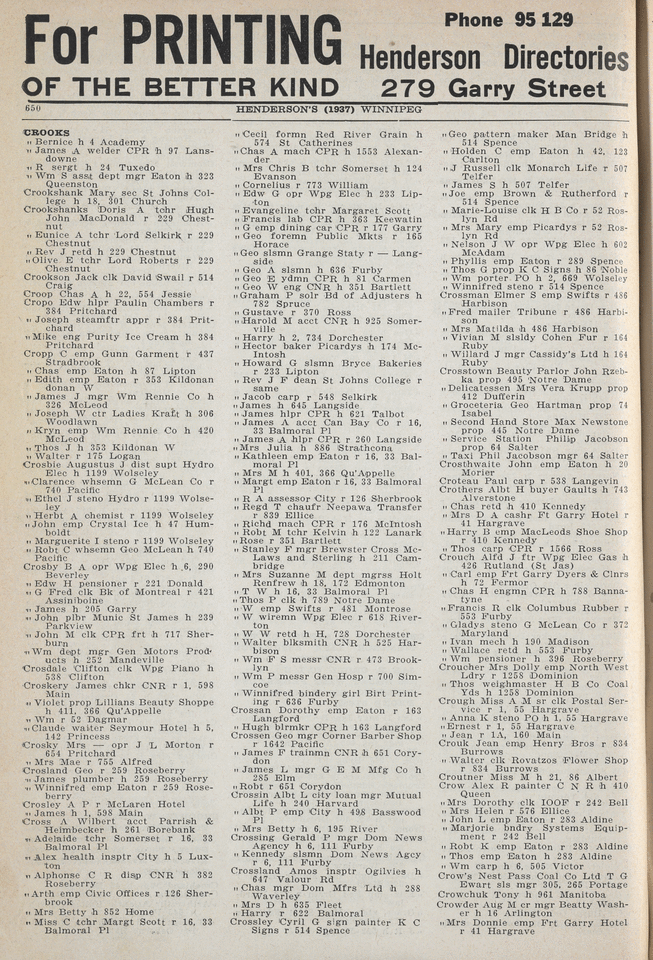 For PRINTING
OF THE BETTER KIND
Phone 95 129
Henderson Directories
279 Garry Street
650
HENDERSON'S (1937) WINNIPEG
CROOKS
" Bernice h 4 Academy
" James A welder CPR h 97 Lans-
downe
" R sergt h 24 Tuxedo
" Wm S asst dept mgr Eaton h 323
Queenston
Crookshank Mary sec St Johns Col-
lege h 18, 301 Church
Crookshanks Doris A tchr Hugh
John MacDonald r 229 Chest-
nut
" Eunice A tchr Lord Selkirk r 229
Chestnut
" Rev J retd h 229 Chestnut
" Olive E tchr Lord Roberts r 229
Chestnut
Crookson Jack clk David Swail r 514
Craig
Croop Chas A h 22, 554 Jessie
Cropo Edw hlpr Paulin Chambers r
384 Pritchard
" Joseph steamftr appr r 384 Prit-
chard
" Mike eng Purity Ice Cream h 384
Pritchard
Cropp C emp Gunn Garment r 437
Stradbrook
" Chas emp Eaton h 87 Lipton
" Edith emp Eaton r 353 Kildonan
donan W
" James J mgr Wm Rennie Co h
326 McLeod
" Joseph W ctr Ladies Kraft h 306
Woodlawn
" Kryn emp Wm Rennie Co h 420
McLeod
" Thos J h 353 Kildonan W
" Walter r 175 Logan
Crosbie Augustus J dist supt Hydro
Elec h 1199 Wolseley
" Clarence whsemn G McLean Co r
740 Pacific
" Ethel J steno Hydro r 1199 Wolse-
ley
" Herbt A chemist r 1199 Wolseley
" John emp Crystal Ice h 47 Hum-
boldt
" Marguerite I steno r 1199 Wolseley
" Robt C whsemn Geo McLean h 740
Pacific
Crosby B A opr Wpg Elec h 6, 290
Beverley
" Edw H pensioner r 221 Donald
" G Fred clk Bk of Montreal r 421
Assiniboine
" James h 205 Garry
" John plbr Munic St James h 239
Parkview
" John M clk CPR frt h 717 Sher-
burn
" Wm dept mgr Gen Motors Prod-
ucts h 252 Mandeville
Crosdale Clifton clk Wpg Piano h
538 Clifton
Croskery James chkr CNR r 1, 598
Main
" Violet prop Lillians Beauty Shoppe
h 411, 366 Qu'Appelle
" Wm r 52 Dagmar
" Claude waiter Seymour Hotel h 5,
142 Princess
Crosky Mrs — opr J L Morton r
654 Pritchard
" Mrs Mae r 755 Alfred
Crosland Geo r 259 Roseberry
" James plumber h 259 Roseberry
" Winnifred emp Eaton r 259 Rose-
berry
Crosley A P r McLaren Hotel
" James h 1, 598 Main
Cross A Wilbert acct Parrish &
Heimbecker h 261 Borebank
" Adelaide tchr Somerset r 16, 33
Balmoral Pl
" Alex health insptr City h 5 Lux-
ton
" Alphonse C R disp CNR h 382
Roseberry
" Arth emp Civic Offices r 126 Sher-
brook
" Mrs Betty h 852 Home
" Miss C tchr Margt Scott r 16, 33
Balmoral Pl
" Cecil formn Red River Grain h
574 St Catherines
" Chas A mach CPR h 1553 Alexan-
der
" Mrs Chris B tchr Somerset h 124
Evanson
" Cornelius r 773 William
" Edw G opr Wpg Elec h 233 Lip-
ton
" Evangeline tchr Margaret Scott
" Francis lab CPR h 363 Keewatin
" G emp dining car CPR r 177 Garry
" Geo foremn Public Mkts r 165
Horace
" Geo slsmn Grange Staty r — Lang-
side
" Geo A slsmn h 636 Furby
" Geo E ydmn CPR h 81 Carmen
" Geo W eng CNR h 351 Bartlett
" Graham P solr Bd of Adjusters h
782 Spruce
" Gustave r 370 Ross
" Harold M acct CNR h 925 Somer-
ville
" Harry h 2, 734 Dorchester
" Hector baker Picardys h 174 Mc-
Intosh
" Howard G slsmn Bryce Bakeries
r 233 Lipton
" Rev J F dean St Johns College r
same
" Jacob carp r 548 Selkirk
" James h 645 Langside
" James hlpr CPR h 621 Talbot
" James A acct Can Bay Co r 16,
33 Balmoral Pl
" James A hlpr CPR r 260 Langside
" Mrs Julia h 886 Strathcona
" Kathleen emp Eaton r 16, 33 Bal-
moral Pl
" Mrs M h 401, 366 Qu'Appelle
" Margt emp Eaton r 16, 33 Balmoral
Pl
" R A assessor City r 126 Sherbrook
" Regd T chaufr Neepawa Transfer
r 839 Ellice
" Richd mach CPR r 176 McIntosh
" Robt M tchr Kelvin h 122 Lanark
" Rose r 351 Bartlett
" Stanley F mgr Brewster Cross Mc-
Laws and Sterling h 211 Cam-
bridge
" Mrs Suzanne M dept mgrss Holt
Renfrew h 18, 172 Edmonton
" T W h 16, 33 Balmoral Pl
" Thos P clk h 789 Notre Dame
" W emp Swifts r 481 Montrose
" W wiremn Wpg Elec r 618 River-
ton
" W W retd h H, 728 Dorchester
" Walter blksmith CNR h 525 Har-
bison
" Wm F S messr CNR r 473 Brook-
lyn
" Wm P messr Gen Hosp r 700 Sim-
coe
" Winnifred bindery girl Birt Print-
ing r 636 Furby
Crossan Dorothy emp Eaton r 163
Langford
" Hugh blrmkr CPR h 163 Langford
Crossen Geo mgr Corner Barber Shop
r 1642 Pacific
" James F trainmn CNR h 651 Cory-
don
" James L mgr G E M Mfg Co h
285 Elm
" Robt r 651 Corydon
Crossin Albt L city loan mgr Mutual
Life h 240 Harvard
" Albt P emp City h 498 Basswood
Pl
" Mrs Betty h 6, 195 River
Crossing Gerald P mgr Dom News
Agency h 6, 111 Furby
" Kennedy slsmn Dom News Agcy
r 6, 111 Furby
Crossland Amos insptr Ogilvies h
647 Valour Rd
" Chas mgr Dom Mfrs Ltd h 288
Waverley
" Mrs D h 635 Fleet
" Harry r 622 Balmoral
Crossley Cyril G sign painter K C
Signs r 514 Spence
" Geo pattern maker Man Bridge h
514 Spence
" Holden C emp Eaton h 42, 123
Carlton
" J Russell clk Monarch Life r 507
Telfer
" James S h 507 Telfer
" Joe emp Brown & Rutherford r
514 Spence
" Marie-Louise clk H B Co r 52 Ros-
lyn Rd
" Mrs Mary emp Picardys r 52 Ros-
lyn Rd
" Nelson J W opr Wpg Elec h 602
McAdam
" Phyllis emp Eaton r 289 Spence
" Thos G prop K C Signs h 86 Noble
" Wm porter PO h 2, 669 Wolseley
" Winnifred steno r 514 Spence
Crossman Elmer S emp Swifts r 486
Harbison
" Fred mailer Tribune r 486 Harbi-
son
" Mrs Matilda h 486 Harbison
" Vivian M slsldy Cohen Fur r 164
Ruby
" Willard J mgr Cassidy's Ltd h 164
Ruby
Crosstown Beauty Parlor John Rzeb-
ka prop 495 Notre Dame
" Delicatessen Mrs Vera Krupp prop
412 Dufferin
" Groceteria Geo Hartman prop 74
Isabel
" Second Hand Store Max Newstone
prop 445 Notre Dame
" Service Station Philip Jacobson
prop 64 Salter
" Taxi Phil Jacobson mgr 64 Salter
Crosthwaite John emp Eaton h 20
Morier
Croteau Paul carp r 538 Langevin
Crothers Albt H buyer Gaults h 743
Alverstone
" Chas retd h 410 Kennedy
" Mrs D A cashr Ft Garry Hotel r
41 Hargrave
" Harry B emp MacLeods Shoe Shop
r 410 Kennedy
" Thos carp CPR r 1566 Ross
Crouch Ald J ftr Wpg Elec Gas h
426 Rutland (St Jas)
" Carl emp Frt Garry Dyers & Clnrs
h 72 Fermor
" Chas H engmn CPR h 788 Banna-
tyne
" Francis R clk Columbus Rubber r
553 Furby
" Gladys steno G McLean Co r 372
Maryland
" Ivan mech h 190 Madison
" Wallace retd h 553 Furby
" Wm pensioner h 396 Roseberry
Croucher Mrs Dolly emp North West
Ldry r 1258 Dominion
" Thos weighmaster H B Coal Co
Yds h 1258 Dominion
Crough Miss A M sr clk Postal Ser-
vice r 1, 55 Hargrave
" Anna K steno PO h 1, 55 Hargrave
" Ernest r 1, 55 Hargrave
" Jean r 1A, 160 Main
Crouk Jean emp Henry Bros r 834
Burrows
" Walter clk Rovatzos Flower Shop
r 834 Burrows
Croutner Miss M h 21, 86 Albert
Crow Alex R painter C N R h 410
Queen
" Mrs Dorothy clk IOOF r 242 Bell
" Mrs Helen r 576 Ellice
" John L emp Eaton r 283 Aldine
" Marjorie bndry Systems Equip-
ment r 242 Bell
" Robt K emp Eaton r 283 Aldine
" Thos emp Eaton h 283 Aldine
" Wm carp h 6, 505 Victor
Crow's Nest Pass Coal Co Ltd T G
Ewart sls mgr 305, 265 Portage
Crowchuk Tony h 961 Manitoba
Crowder Aug M cr mgr Beatty Wash-
er h 16 Arlington
" Mrs Donnie emp Frt Garry Hotel
r 41 Hargrave